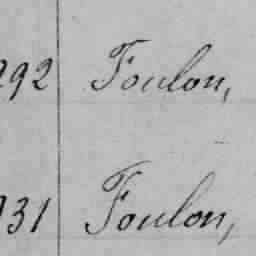 292 Foulon,
931 Foulon,